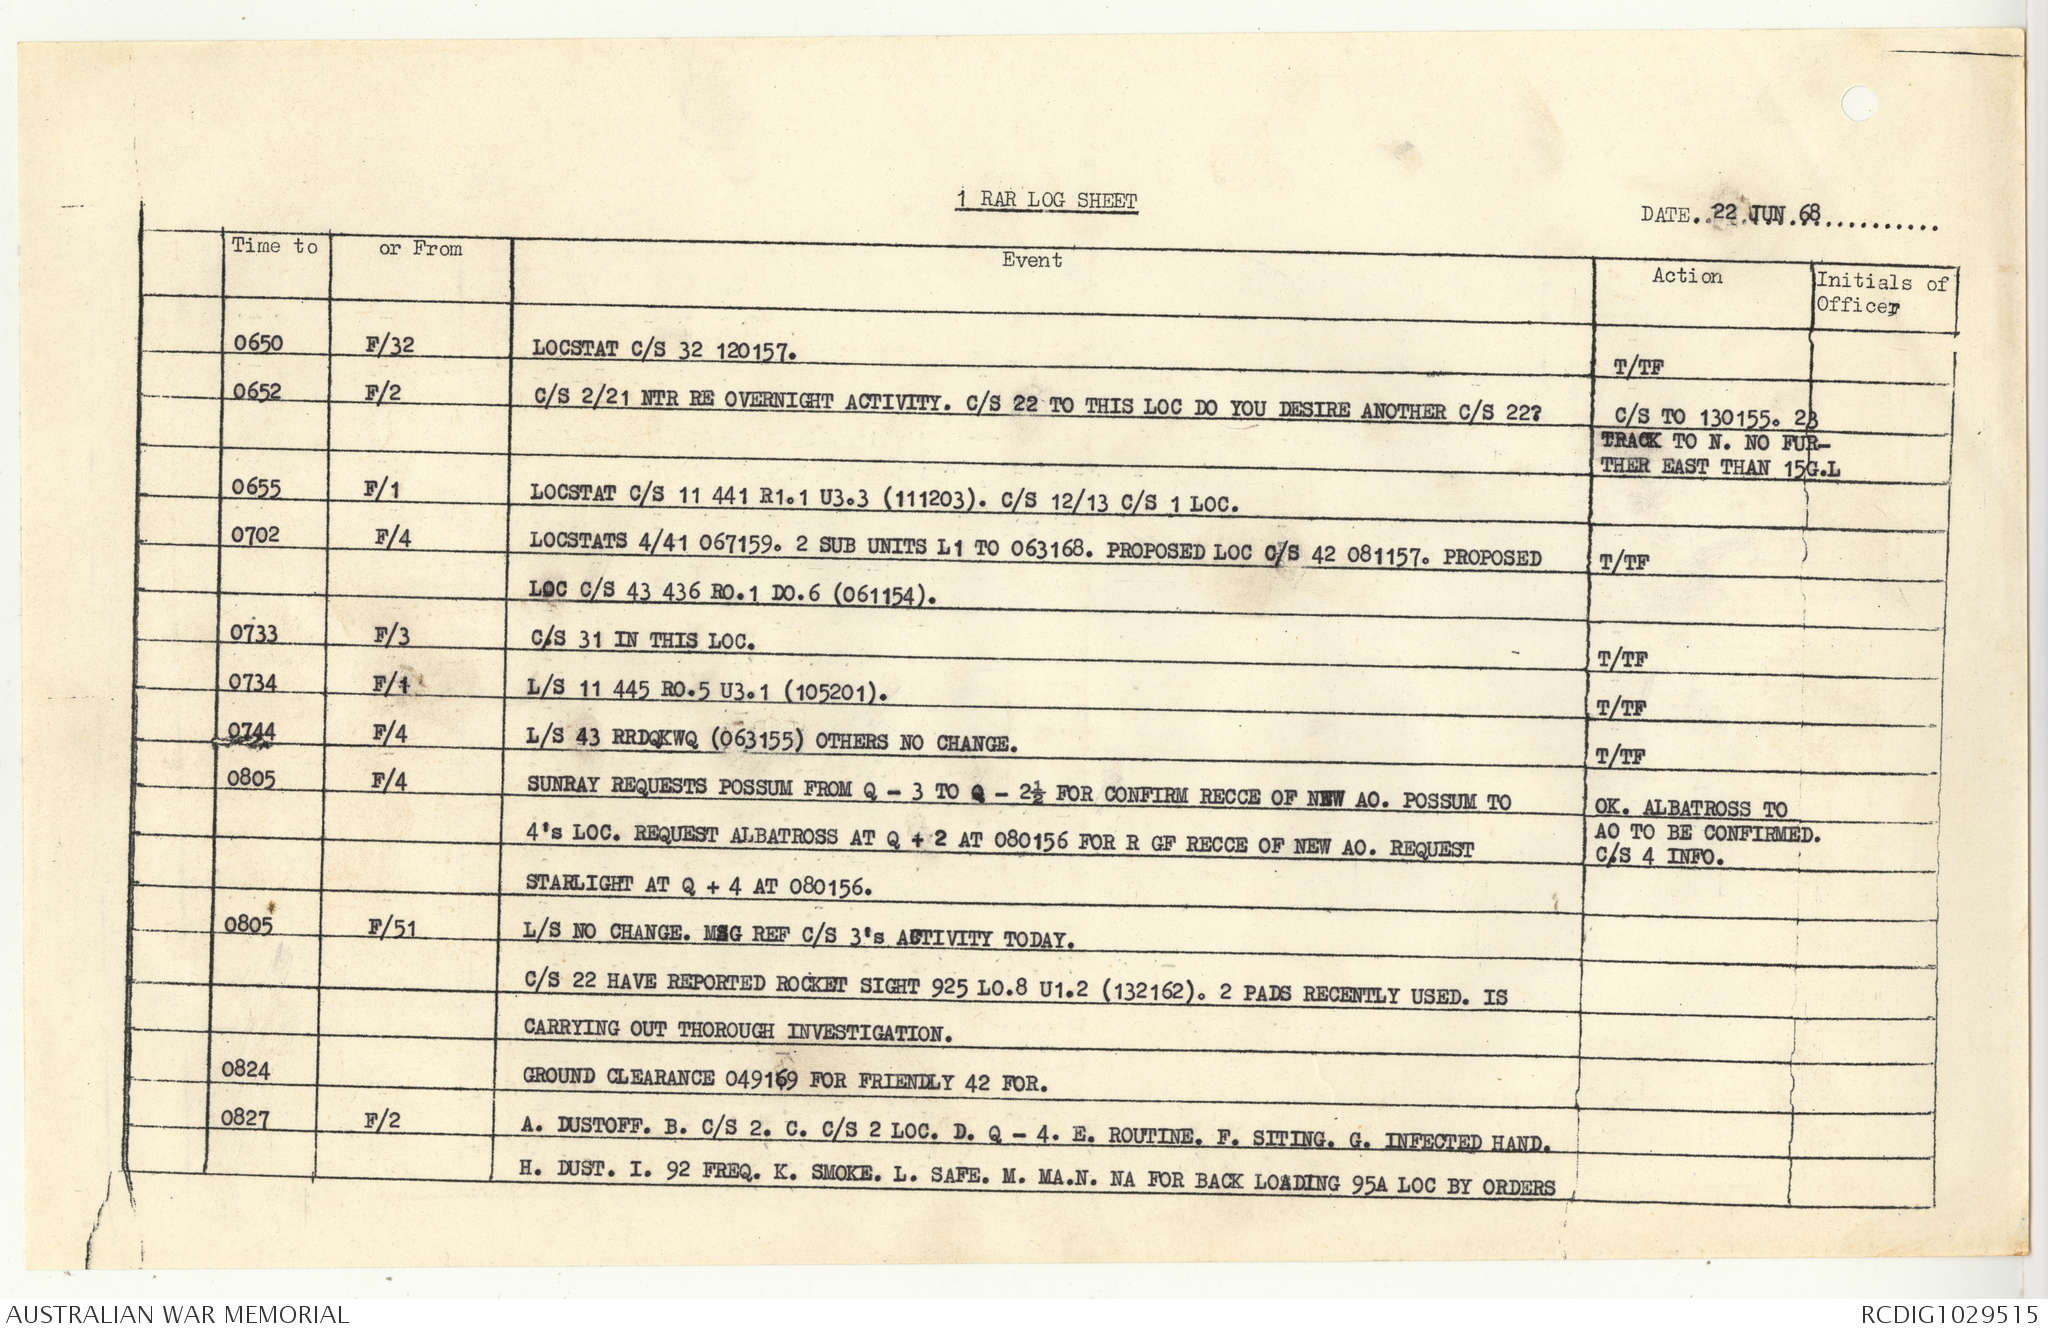 1 RAR LOG SHEET
DATE..22 JUN 68...........
Time to or From Event Action Initials of
Officer
0650 F/32 LOCSTAT C/S 32 120157. T/TF
0652 F/2 C/S 2/21 NTR RE OVERNIGHT ACTIVITY. C/S 22 TO THIS LOC DO YOU DESIRE ANOTHER C/S 22? C/S TO 130155. 23
TRACK TO N. NO FUR-
THER EAST THAN 15G.L
0655 F/1 LOCSTAT C/S 11 441 R1.1 U3.3 (111203). C/S 12/13 C/S 1 LOC.
0702 F/4 LOCSTATS 4/41 067159. 2 SUB UNITS L1 TO 063168. PROPOSED LOC C/S 42 081157. PROPOSED T/TF
LOC C/S 43 436 RO.1 DO.6 (061154).
0733 F/3 C/S 31 IN THIS LOC. T/TF
0734 F/1 L/S 11 445 RO.5 U3.1 (105201). T/TF
0744 F/4 L/S 43 RRDQKWQ (063155) OTHERS NO CHANGE. T/TF
0805 F/4 SUNRAY REQUESTS POSSUM FROM Q - 3 TO Q - 2½ FOR CONFIRM RECCE OF NEW AO. POSSUM TO OK. ALBATROSS TO
4's LOC. REQUEST ALBATROSS AT Q + 2 AT 080156 FOR R GF RECCE OF NEW AO. REQUEST AO TO BE CONFIRMED.
C/S 4 INFO.
STARLIGHT AT Q + 4 AT 080156.
0805 F/51 L/S NO CHANGE. MSG REF C/S 3's ACTIVITY TODAY.
C/S 22 HAVE REPORTED ROCKET SIGHT 925 LO.8 U1.2 (132162). 2 PADS RECENTLY USED. IS
CARRYING OUT THOROUGH INVESTIGATION.
0824 GROUND CLEARANCE 049169 FOR FRIENDLY 42 FOR.
0827 F/2 A. DUSTOFF. B. C/S 2. C. C/S 2 LOC. D. Q - 4. E. ROUTINE. F. SITING. G. INFECTED HAND.
H. DUST. I. 92 FREQ. K. SMOKE. L. SAFE. M. MA.N. NA FOR BACK LOADING 95A LOC BY ORDERS
AUSTRALIAN WAR MEMORIAL RCDIG1029515